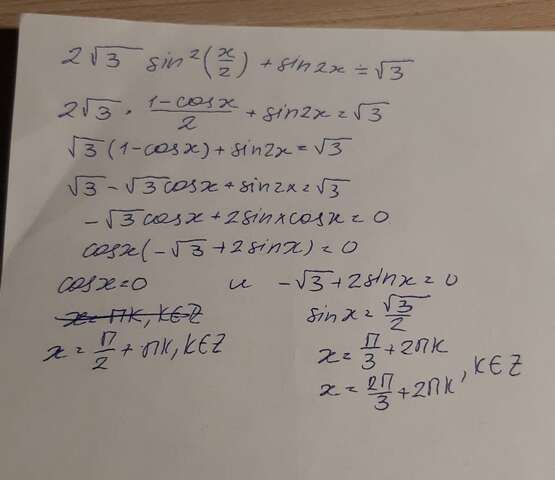 2√3 sin²(x/2) + sin2x = √3
2√3 · (1-cosx)/2 + sin2x = √3
√3(1-cosx) + sin2x = √3
√3 - √3cosx + sin2x = √3
-√3cosx + 2sinxcosx = 0
cosx(-√3 + 2sinx) = 0
cosx = 0 и -√3 + 2sinx = 0
x = πk, k∈Z
sinx = √3/2
x = π/2 + πk, k∈Z
x = π/3 + 2πk
x = 2π/3 + 2πk, k∈Z